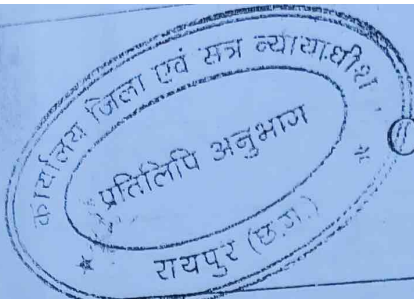 कार्यालय जिला एवं सत्र न्यायाधीश
प्रतिलिपि अनुभाग
रायपुर (छ.ग.)